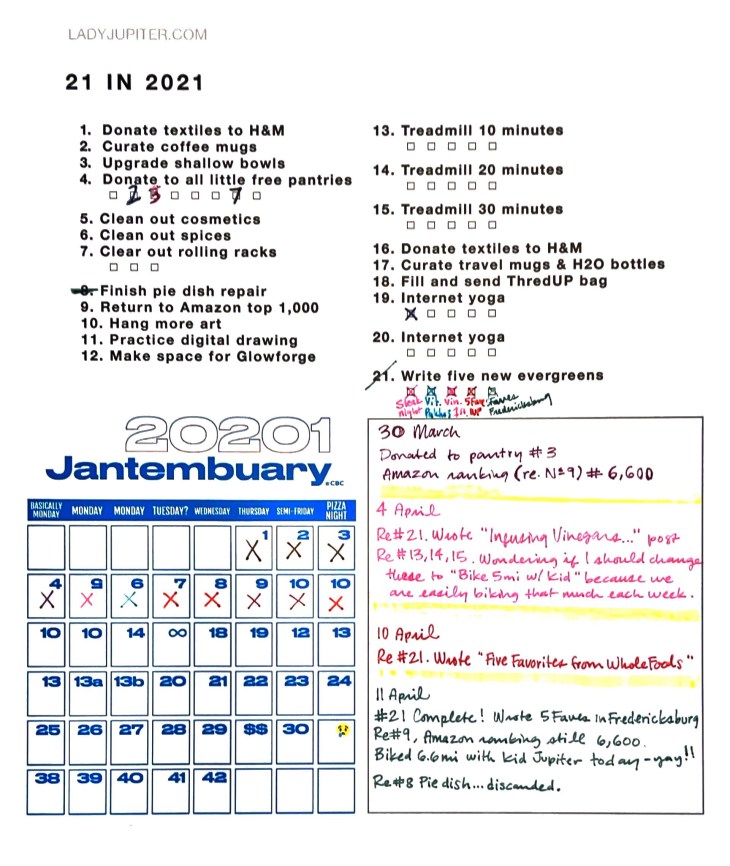 LADYJUPITER.COM
21 IN 2021
1. Donate textiles to H&M
2. Curate coffee mugs
3. Upgrade shallow bowls
4. Donate to all little free pantries
2 3 7
5. Clean out cosmetics
6. Clean out spices
7. Clear out rolling racks
8. Finish pie dish repair
9. Return to Amazon top 1,000
10. Hang more art
11. Practice digital drawing
12. Make space for Glowforge
13. Treadmill 10 minutes
14. Treadmill 20 minutes
15. Treadmill 30 minutes
16. Donate textiles to H&M
17. Curate travel mugs & H2O bottles
18. Fill and send ThredUP bag
19. Internet yoga
X
20. Internet yoga
21. Write five new evergreens
Vit. Vin. 5 Fav. Faves
night Fredericksburg
20201
Jantembuary
.CBC
BASICALLY MONDAY MONDAY MONDAY TUESDAY? WEDNESDAY THURSDAY SEMI-FRIDAY PIZZA NIGHT
1 2 3
X X X
4 9 6 7 8 9 10 10
X X X X X X X X
10 10 14 ∞ 18 19 12 13
13 13a 13b 20 21 22 23 24
25 26 27 28 29 $$ 30
38 39 40 41 42
30 March
Donated to pantry #3
Amazon ranking (re. Nº9) # 6,600
4 April
Re#21. Wrote "Infusing Vinegars..." post
Re #13,14,15. Wondering if I should change
these to "Bike 5mi w/ kid" because we
are easily biking that much each week.
10 April
Re #21. Wrote "Five Favorites from Whole Foods"
11 April
#21 Complete! Wrote 5 Faves in Fredericksburg
Re#9, Amazon ranking still 6,600.
Biked 6.6mi with kid Jupiter today - yay!!
Re#8 Pie dish... discarded.